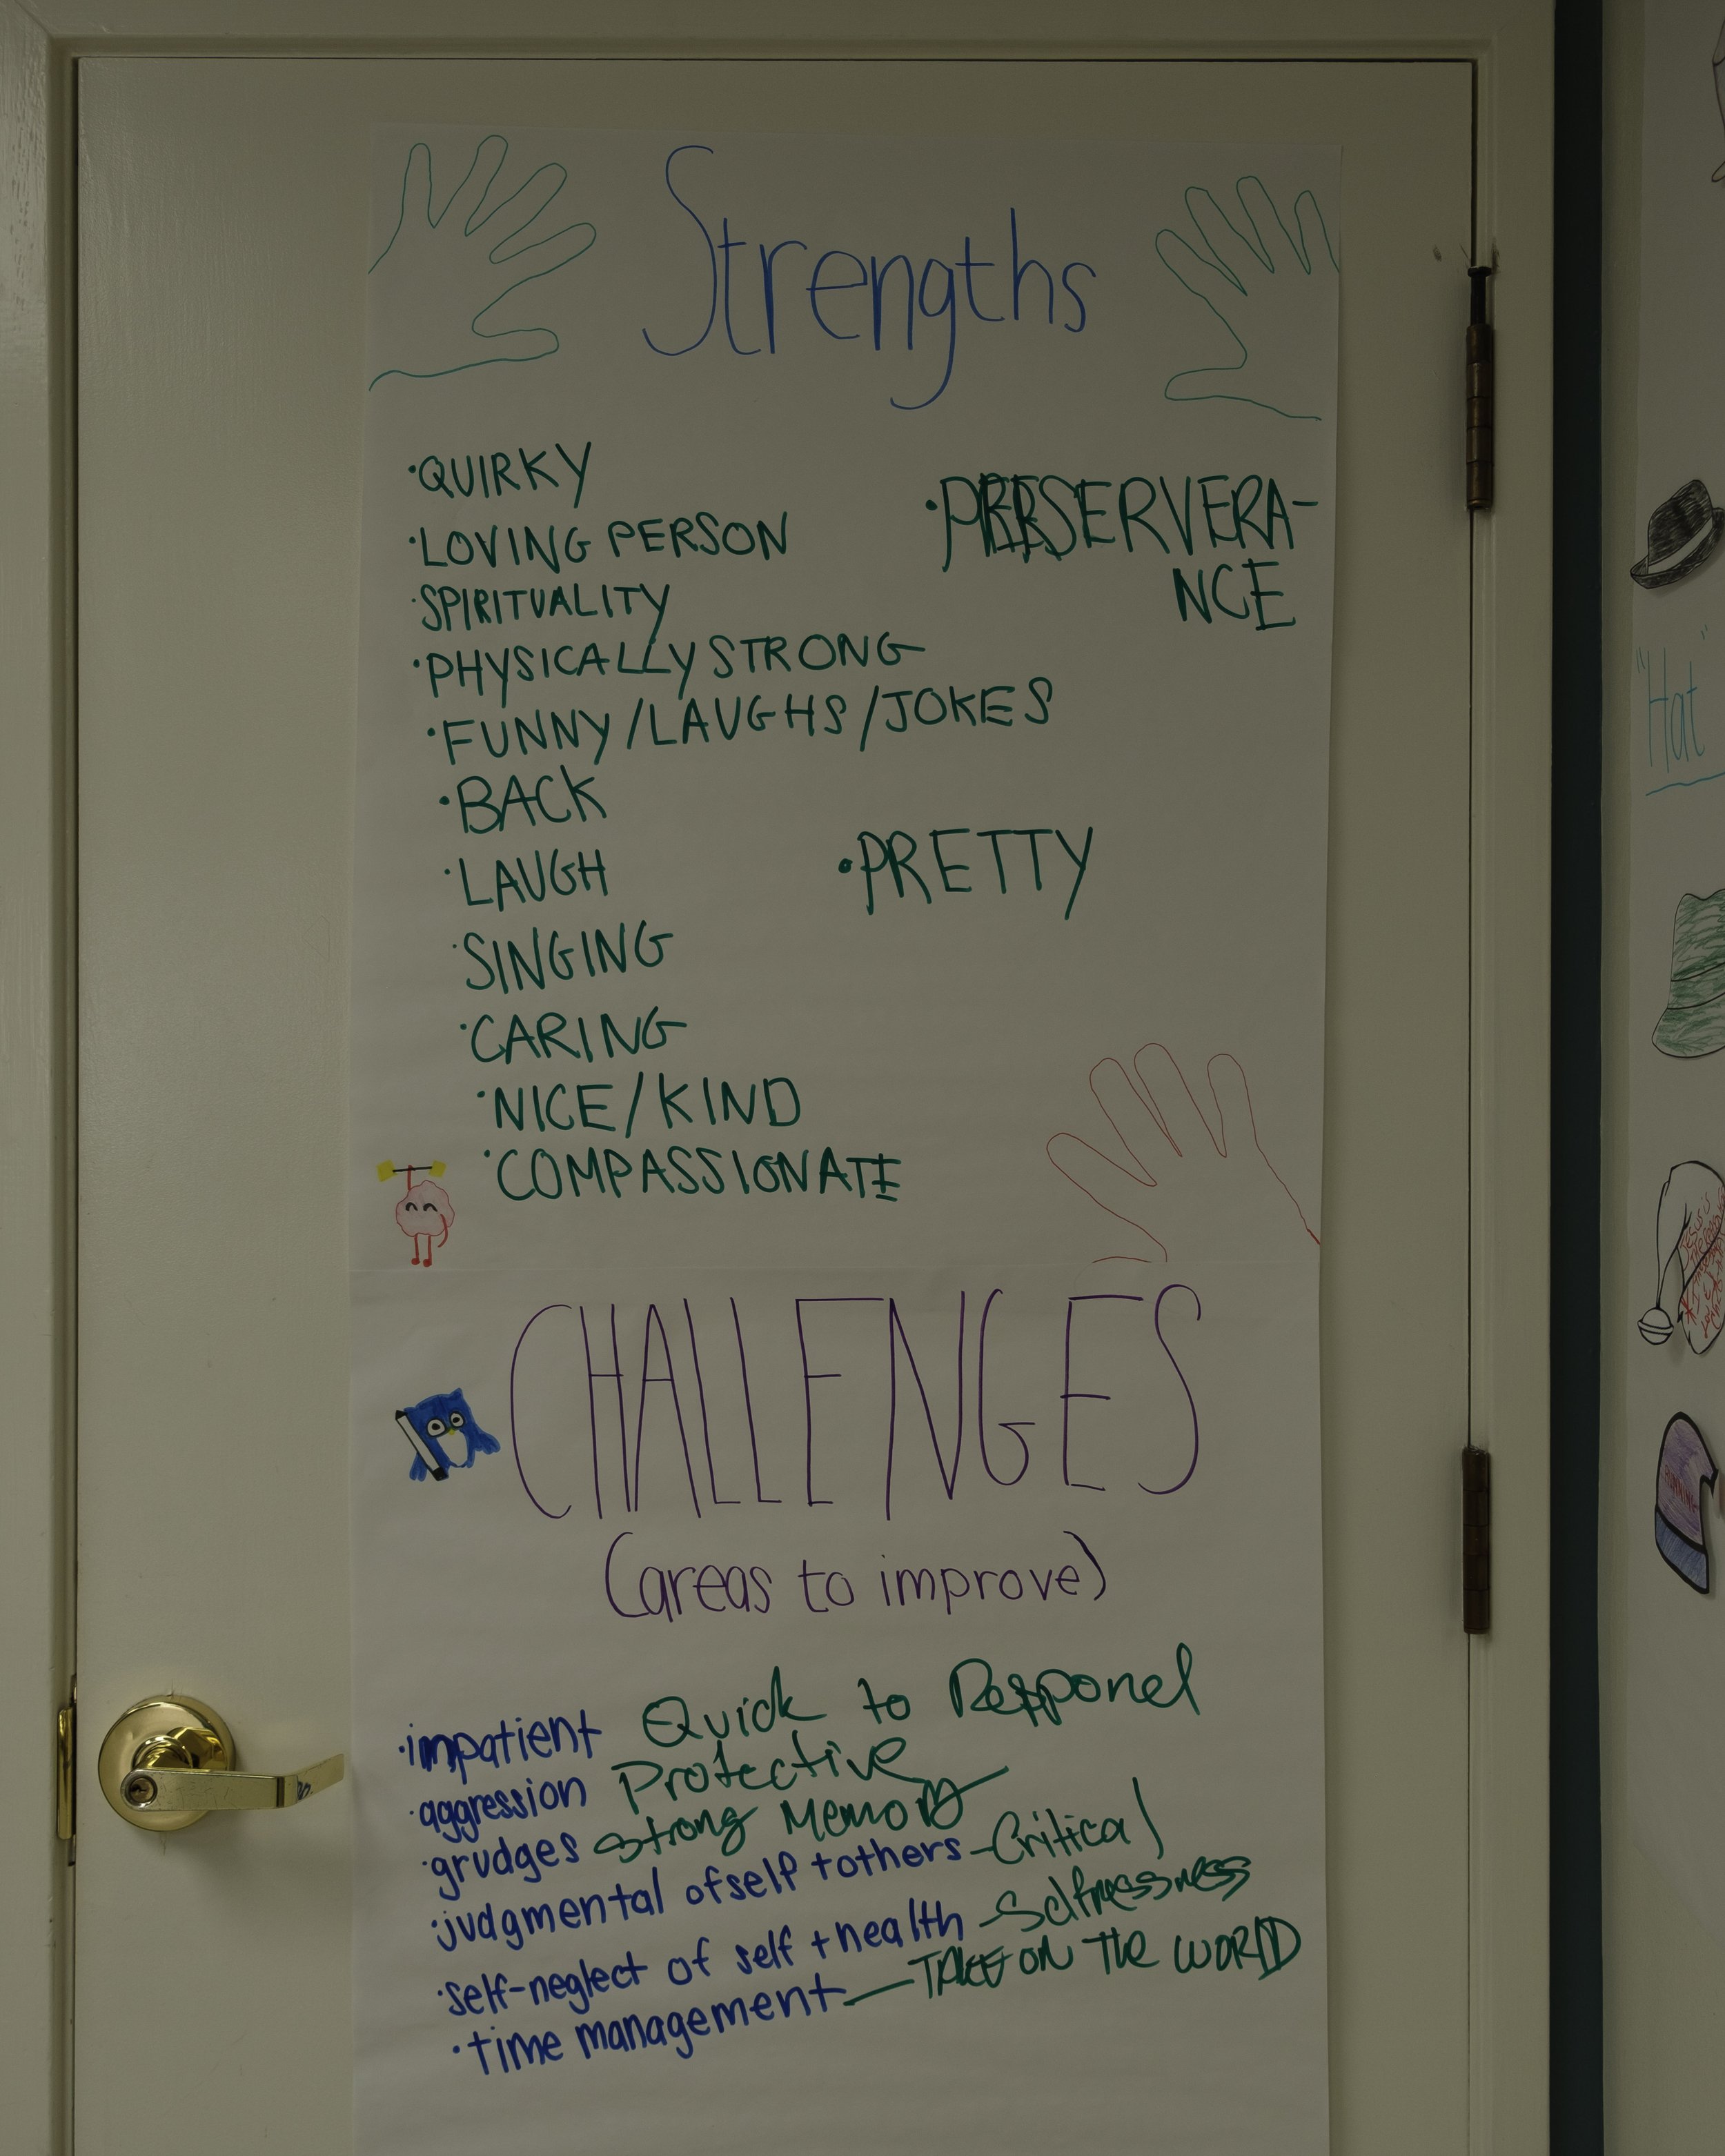 Strengths
·QUIRKY
·LOVING PERSON
·SPIRITUALITY
·PHYSICALLY STRONG
·FUNNY/LAUGHS/JOKES
·BACK
·LAUGH
·SINGING
·CARING
·NICE/KIND
·COMPASSIONATE
·PERSERVERA-
NCE
·PRETTY
CHALLENGES
(areas to improve)
·impatient Quick to Respond
·aggression Protective
·grudges strong Memory
·judgmental of self + others - Critical
·self-neglect of self + health - Selfnessness
·time management - TAKE ON THE WORLD
"Hat"
RUNNING